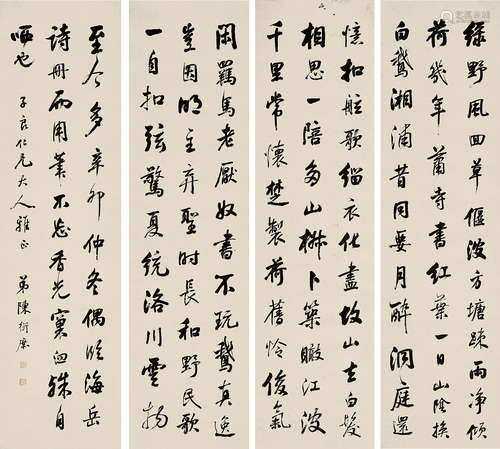 緑野風回草偃波方塘疎雨净傾
荷幾年蕭寺書紅葉一日山陰換
白鵝湘浦昔同要月醉洞庭還
憶扣舷歌緇衣化盡故山去白髮
相思一陪多山椒卜築瞰江波
千里常懷楚製荷舊怜俊氣
閑羈馬老厭奴書不玩鵝真逸
豈因明主弃聖時長和野民歌
一自扣弦驚夏統洛川雲物
至今多辛卯仲冬偶臨海岳
詩冊而用筆不忘香光殊自
哂也 子良仁兄大人雅正 弟陳衍庶